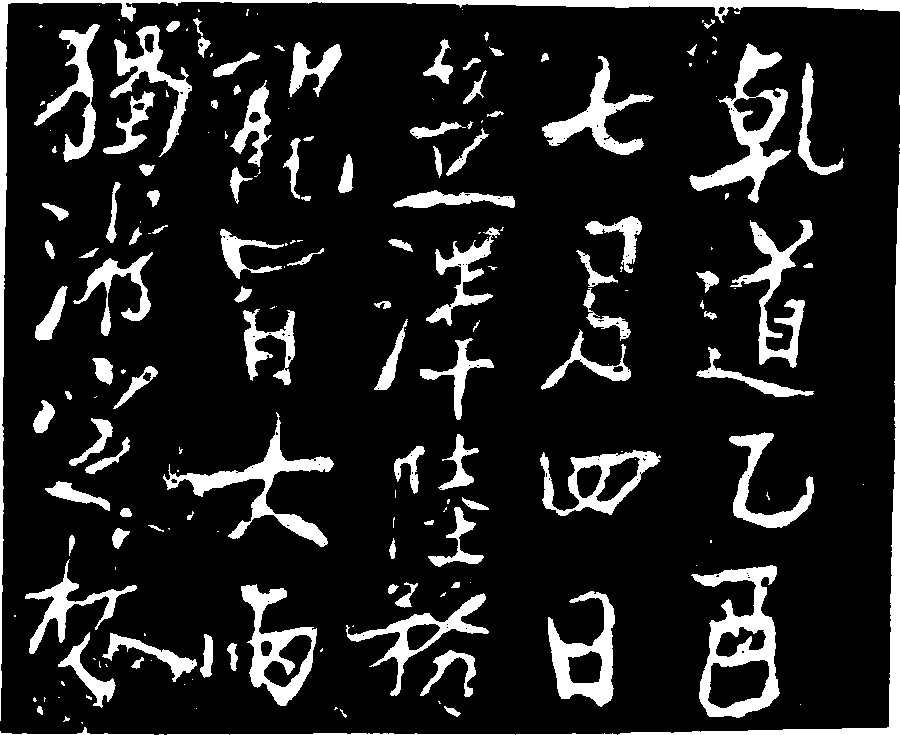 乾道乙酉
七月四日
笠澤陸務
觀冒大雨
獨游定林